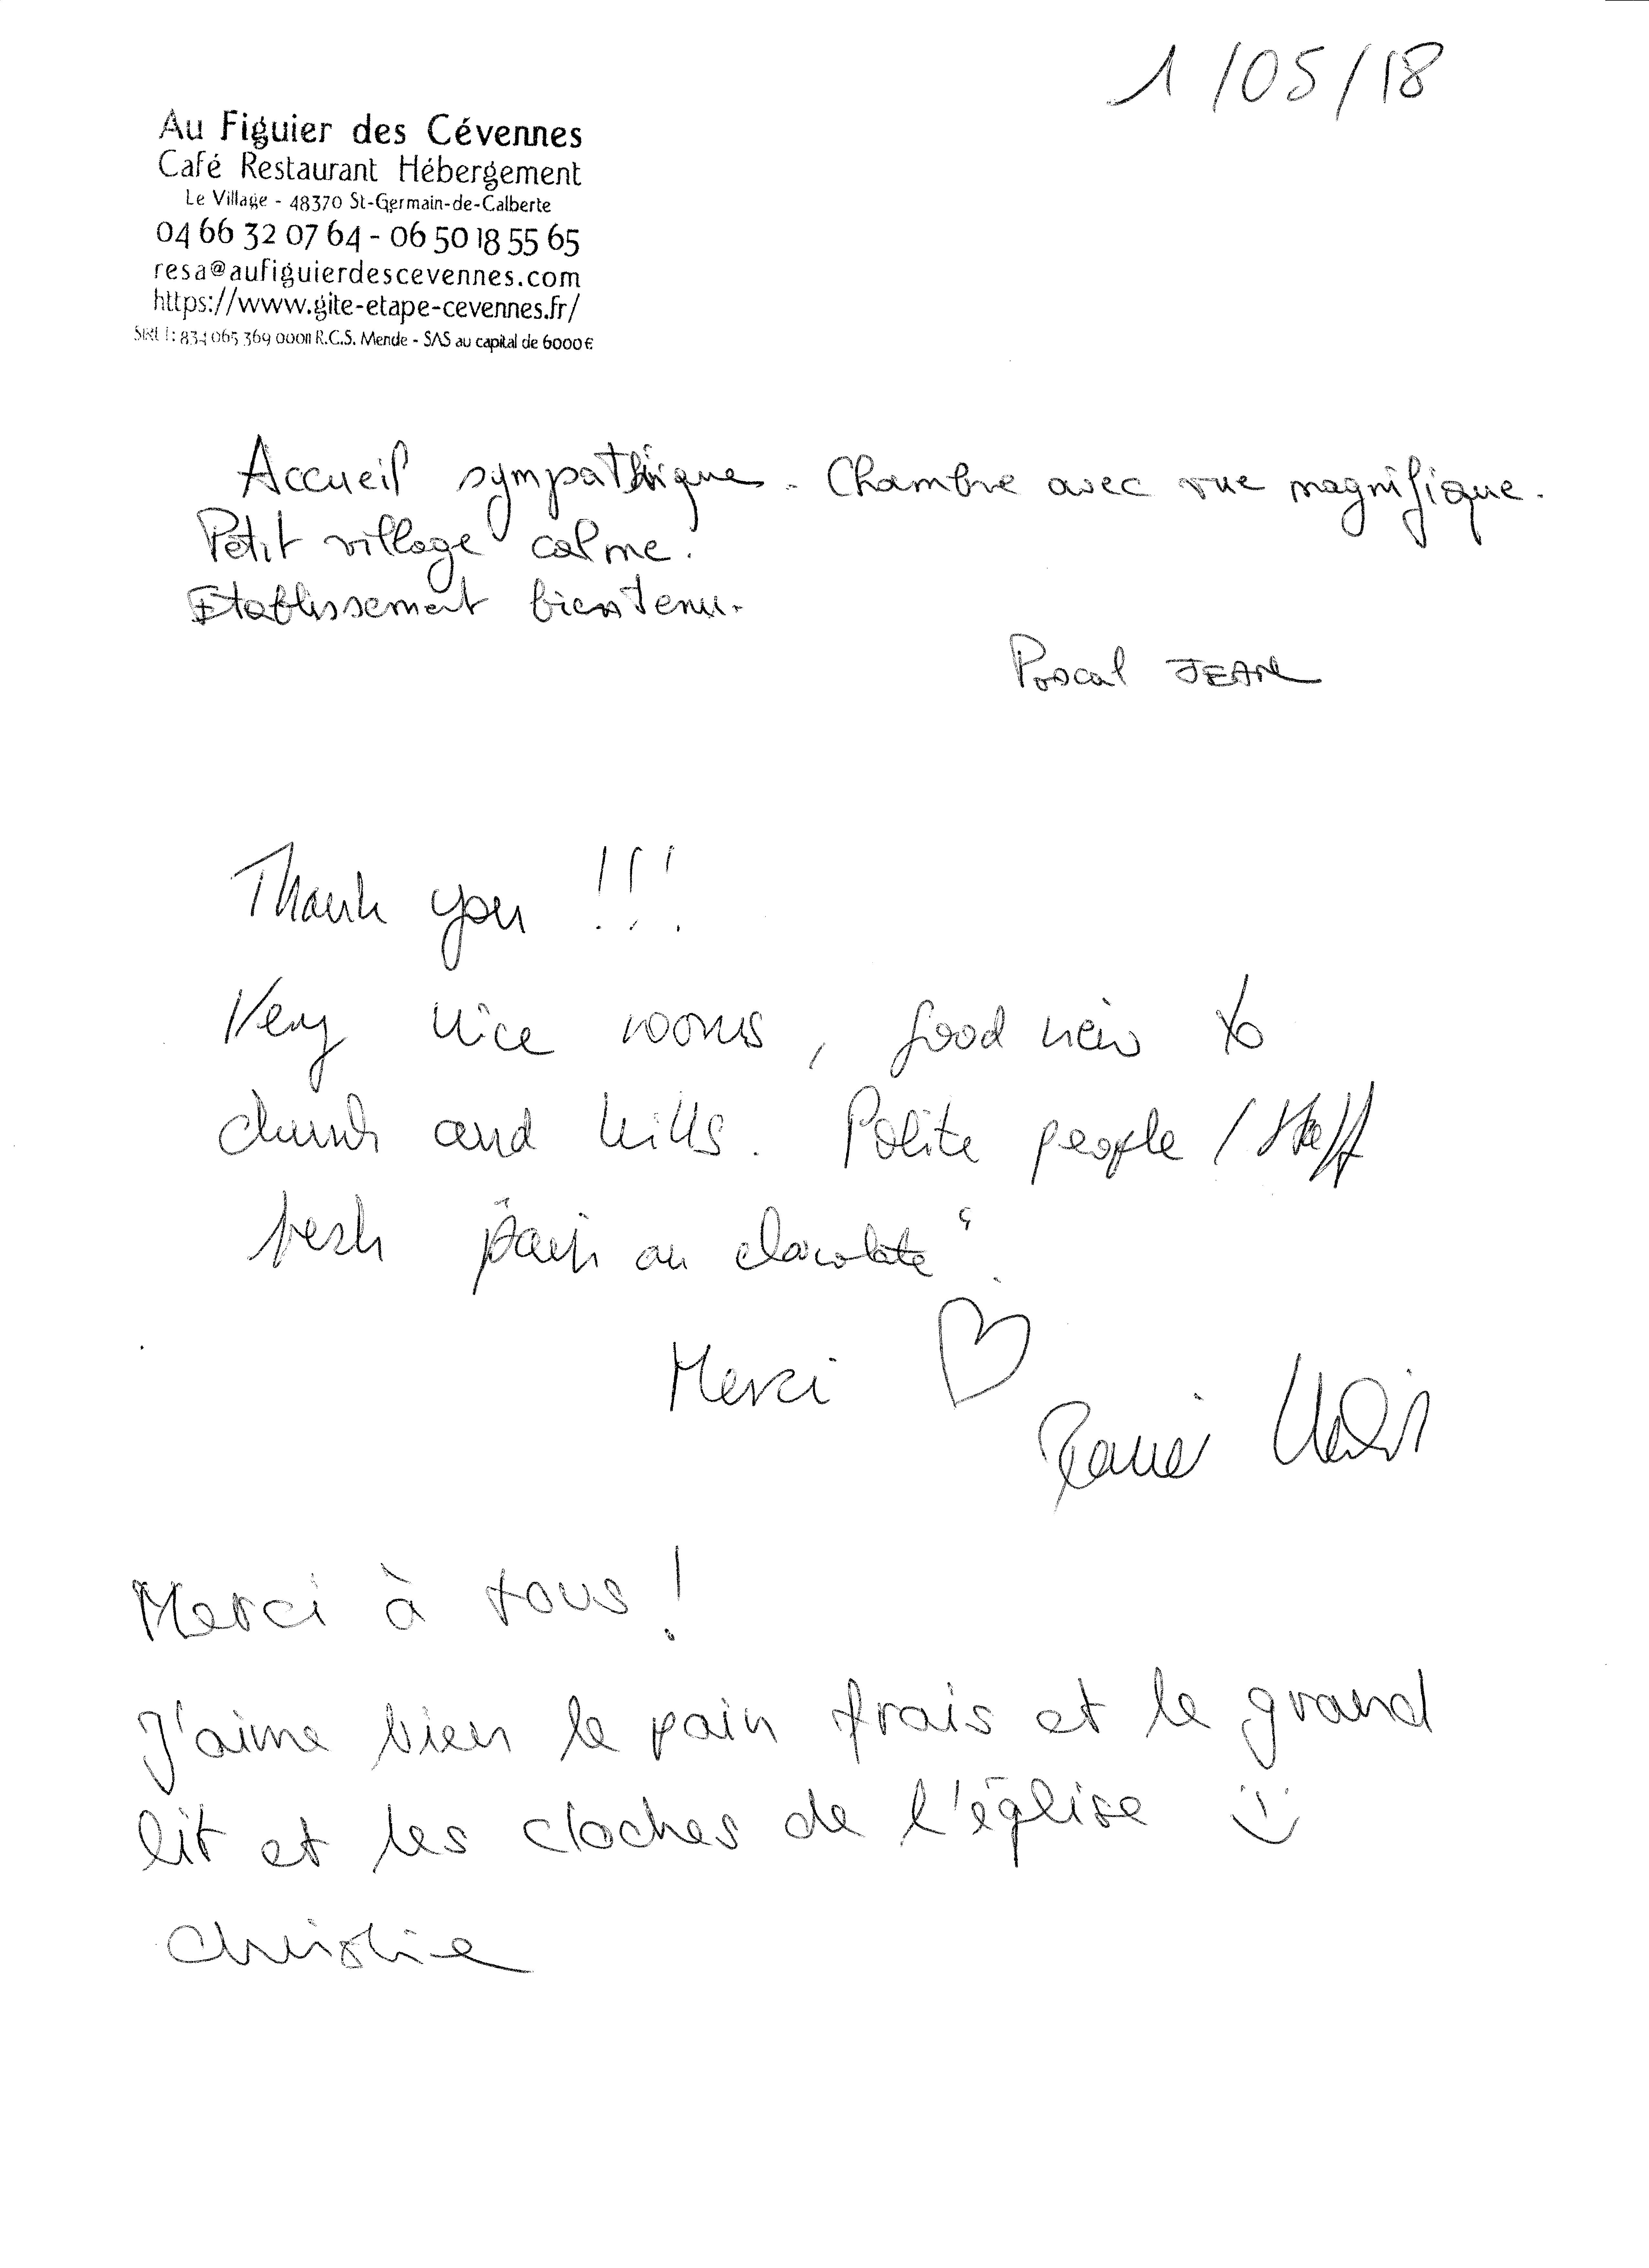 1/05/18
Au Figuier des Cévennes
Café Restaurant Hébergement
Le Village - 48370 St-Germain-de-Calberte
04 66 32 07 64 - 06 50 18 55 65
resa@aufiguierdescevennes.com
https://www.gite-etape-cevennes.fr/
834 065 369 00011 R.C.S. Mende - SAS au capital de 6000€
Accueil sympathique. Chambre avec vue magnifique.
Petit village calme.
Etablissement bien tenu.
Pascal JEAN
Thank you !!!
Very nice rooms, good view to
church and hills. Polite people / staff
fresh "pain au chocolate".
Merci
Merci à tous !
J'aime bien le pain frais et le grand
lit et les cloches de l'église
Christine